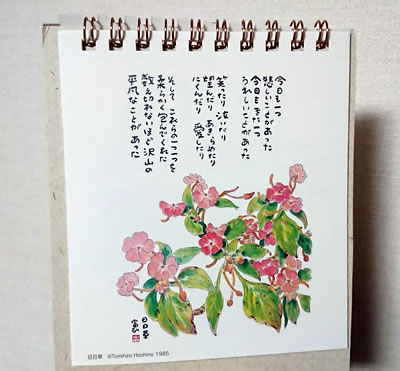 今日も一つ
悲しいことがあった
今日もまた一つ
うれしいことがあった
笑ったり 泣いたり
望んだり あきらめたり
にくんだり 愛したり
そして これらの一つ一つを
柔らかく包んでくれた
数え切れないほど沢山の
平凡なことがあった
日日草
日日草 ©Tomihiro Hoshino 1985